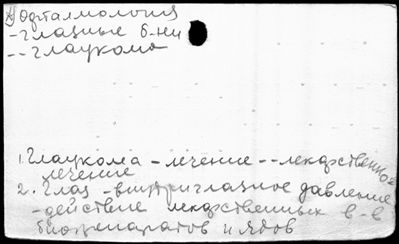 Офтальмология
- глазные б-ни
-- глаукома
1. Глаукома - лечение -- лекарственное
лечение
2. Глаз - внутриглазное давление
- действие лекарственных в-в
биопрепаратов и ядов